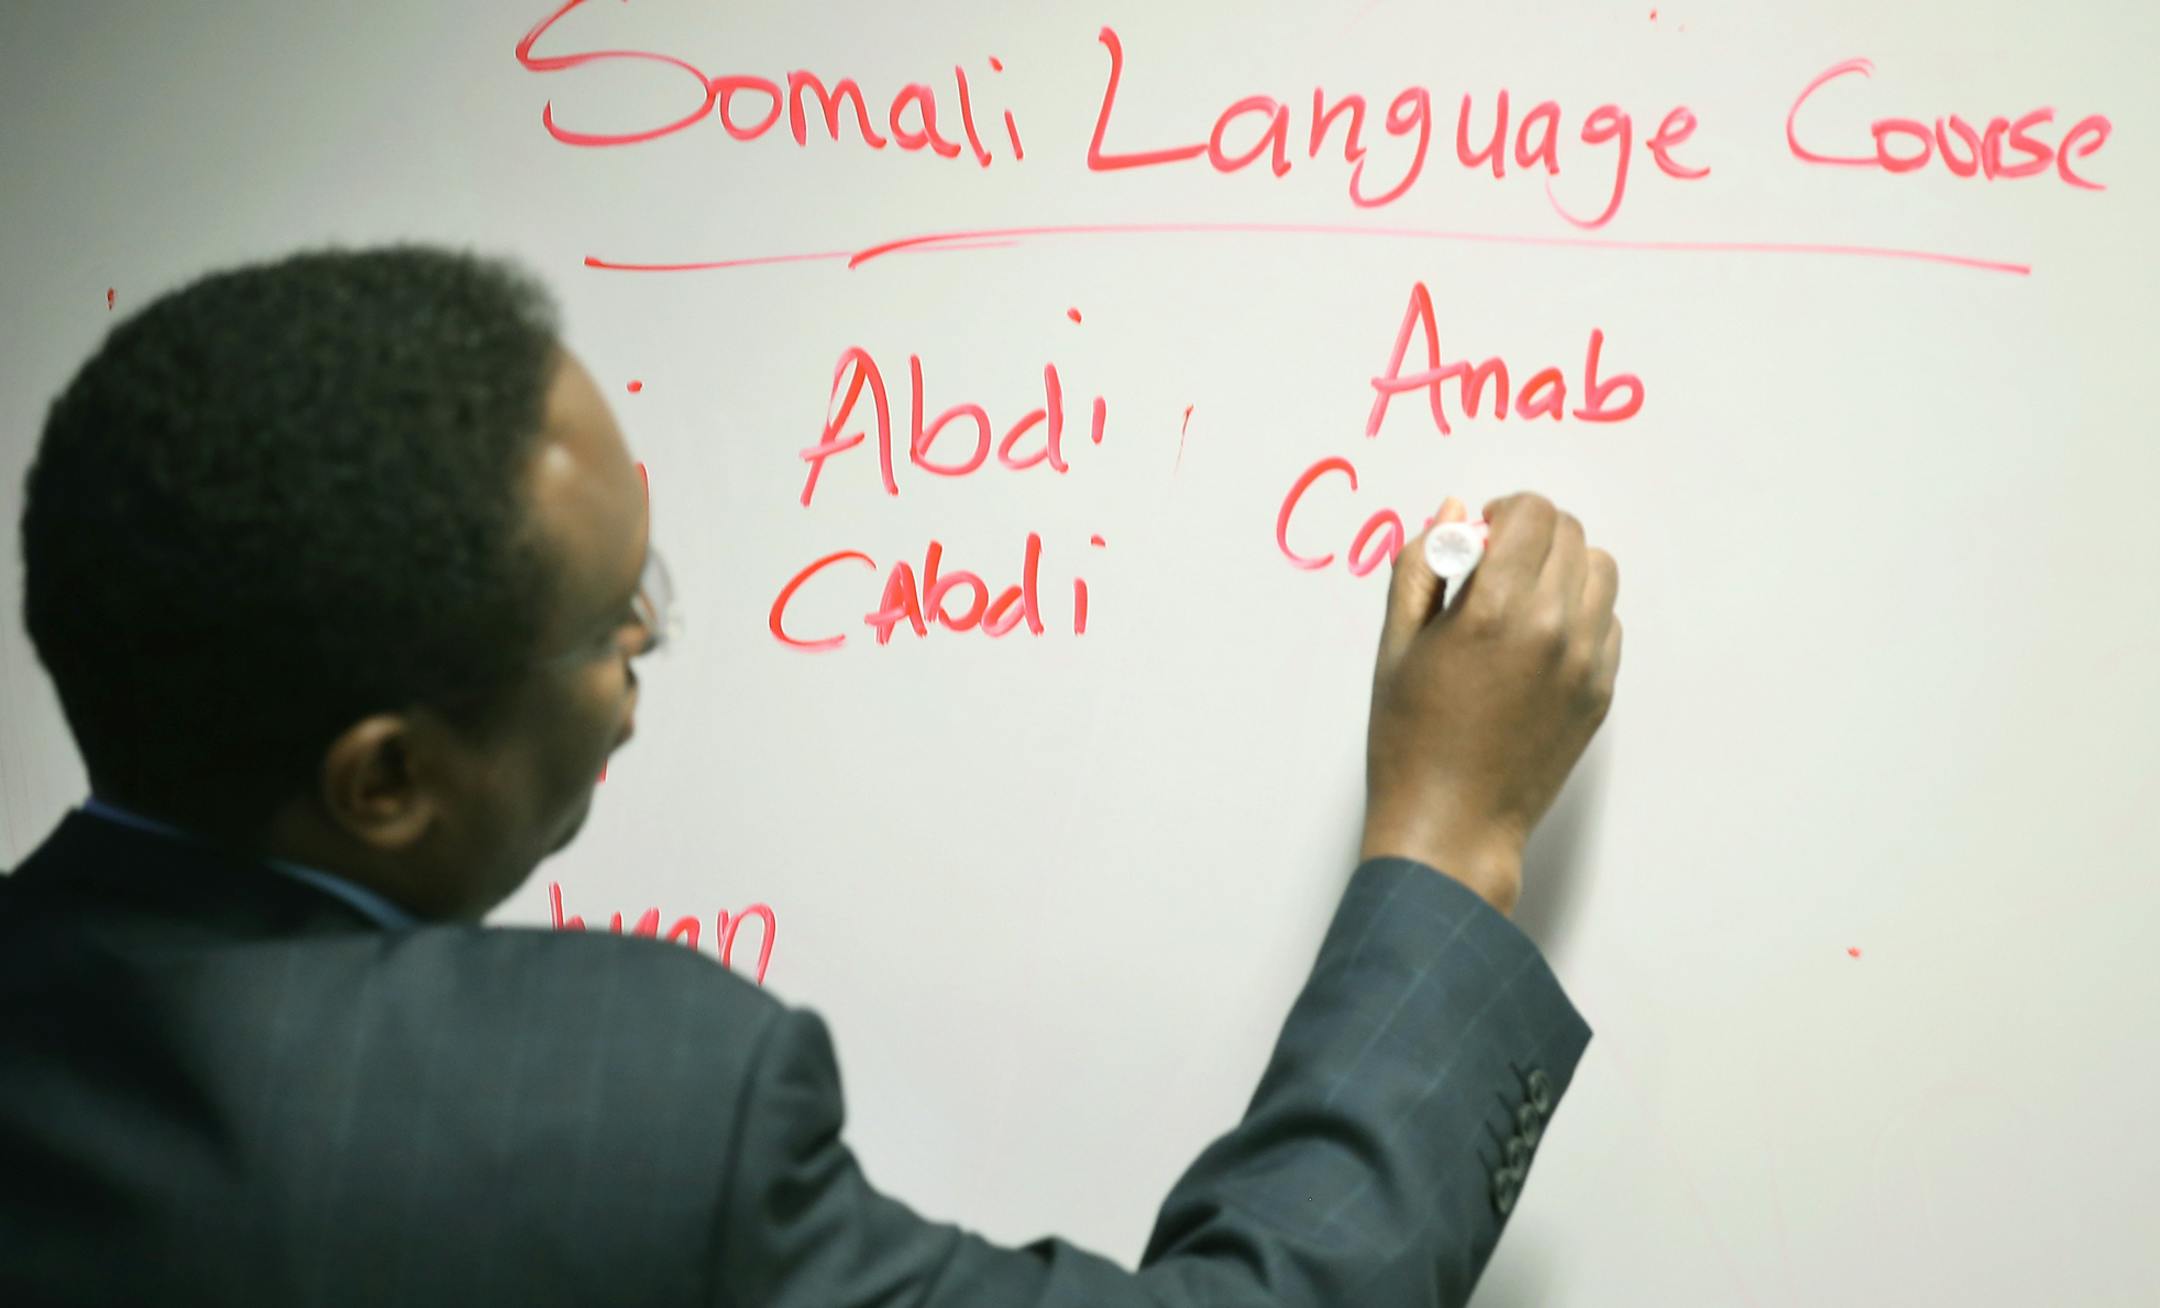 Somali Language Course
Abdi, Anab
CAbdi Ca